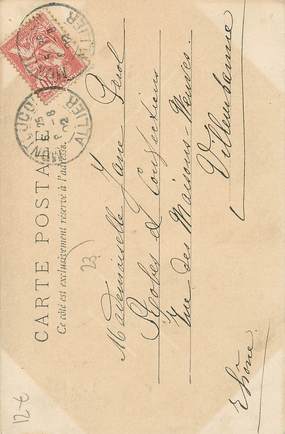 CARTE POSTALE
Ce côté est exclusivement réservé à l'adresse.
ALLIER
25
-8
02
ALLIER
Mademoiselle Jane
Robes et Confections
Rue des Maisons-Neuves
Villeurbanne
Rhône
23
12 €